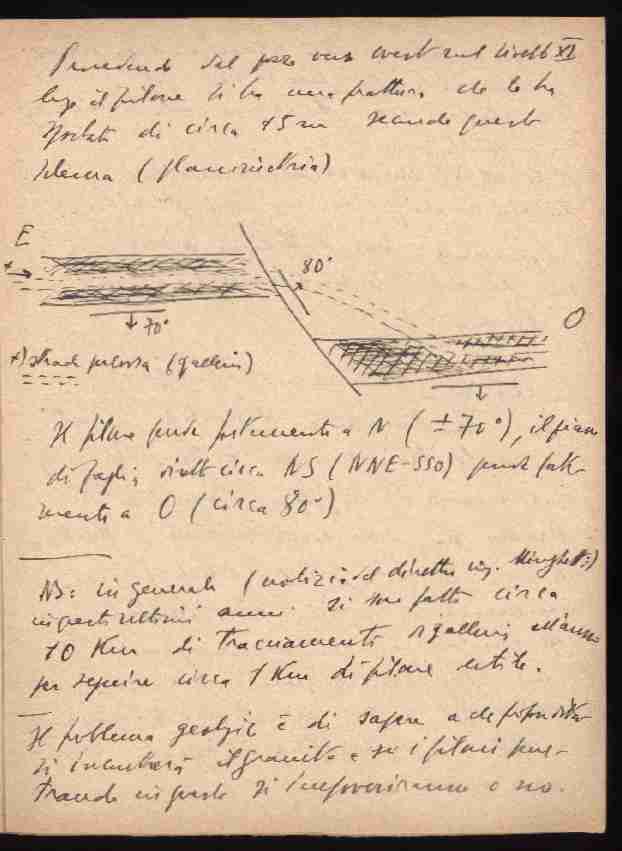 Procedendo dal pozzo verso ovest sul livello XI
lungo il filone si ha una frattura che lo ha
spostato di circa 15 m secondo questo
schema (planimetria)
E
80°
O
70°
x) strada percorsa (galleria)
Il filone pende fortemente a N (± 70°), il piano
di faglia diretto circa NS (NNE-SSO) pende forte-
mente a O (circa 80°)
NB: in generale (notizie del direttore ing. Minghetti)
in questi ultimi anni si son fatti circa
10 Km di tracciamenti o gallerie all'anno
per seguire circa 1 Km di filone utile.
Il problema geologico è di sapere a che profondità
si incontrerà il granito e se i filoni pene-
trando in questo si impoveriranno o no.